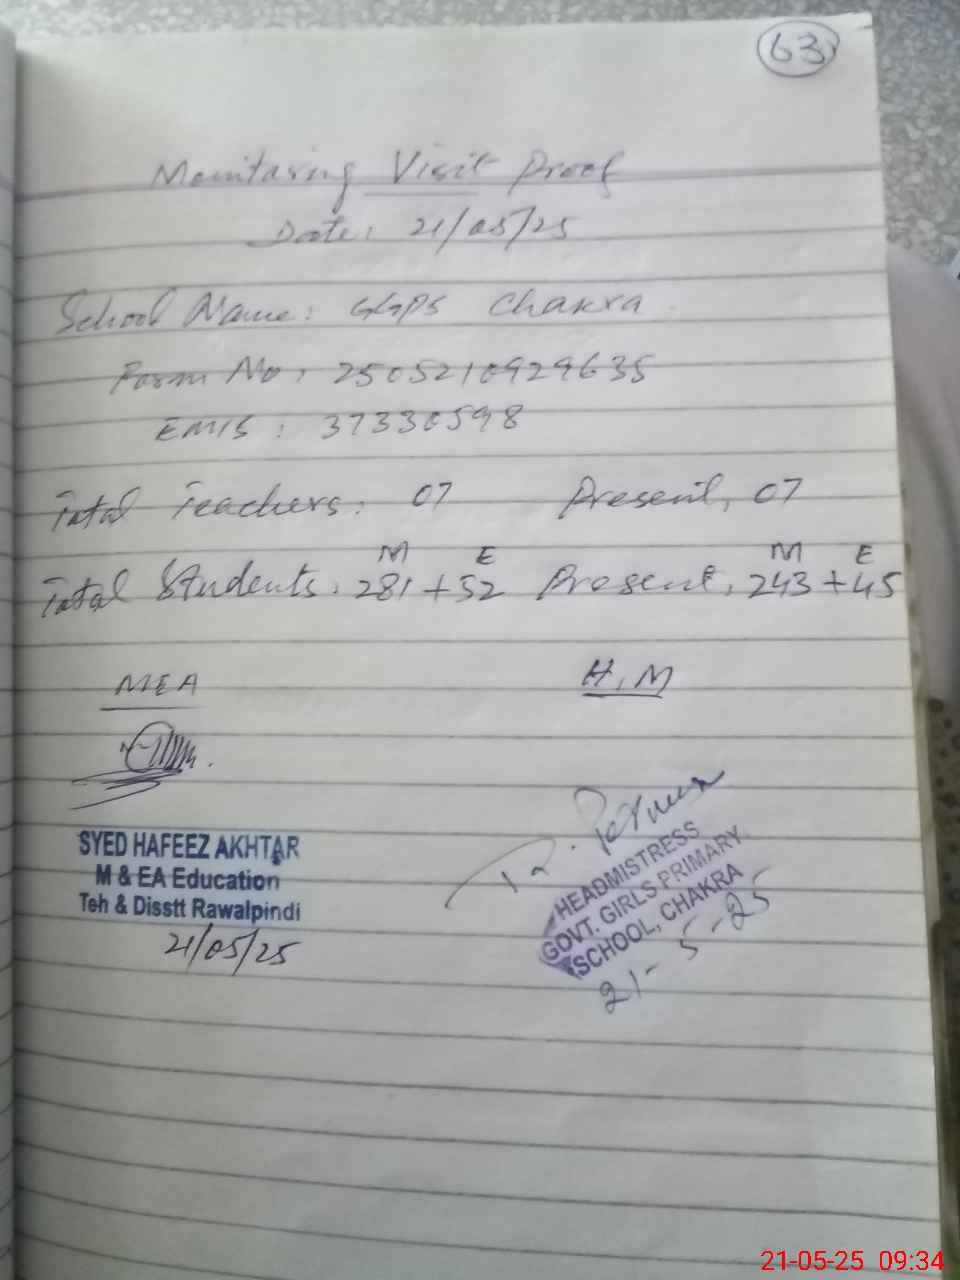 63
Monitaring Visit Proof
Date: 21/05/25
School Name: GGPS Chakra
Form No, 2505210929635
EMIS : 37330598
Total Teachers: 07 Present, 07
M E M E
Total Students, 281+52 Present, 243+45
MEA H,M
SYED HAFEEZ AKHTAR
M & EA Education
Teh & Disstt Rawalpindi
21/05/25
HEADMISTRESS
GOVT. GIRLS PRIMARY
SCHOOL, CHAKRA
21-5-25
21-05-25 09:34